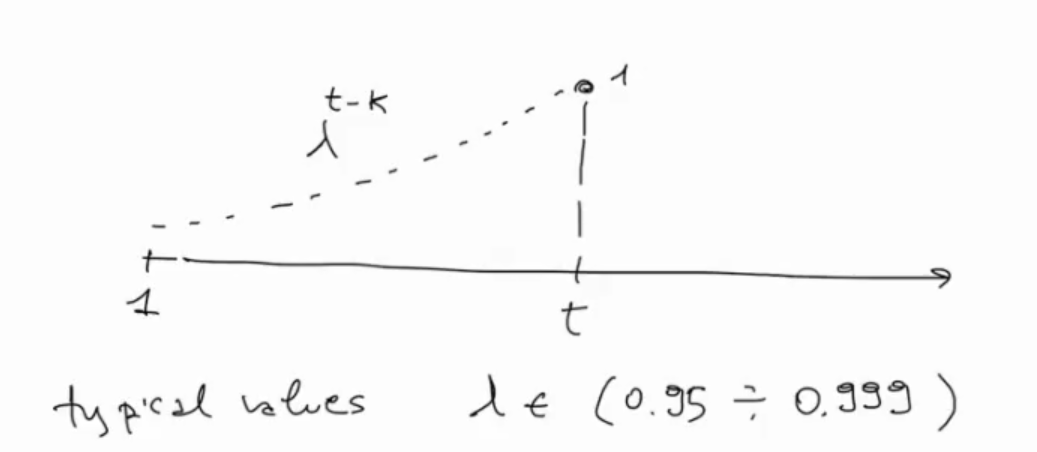 λ^{t-k}
1
1
t
typical values λ ∈ (0.95 ÷ 0.999)